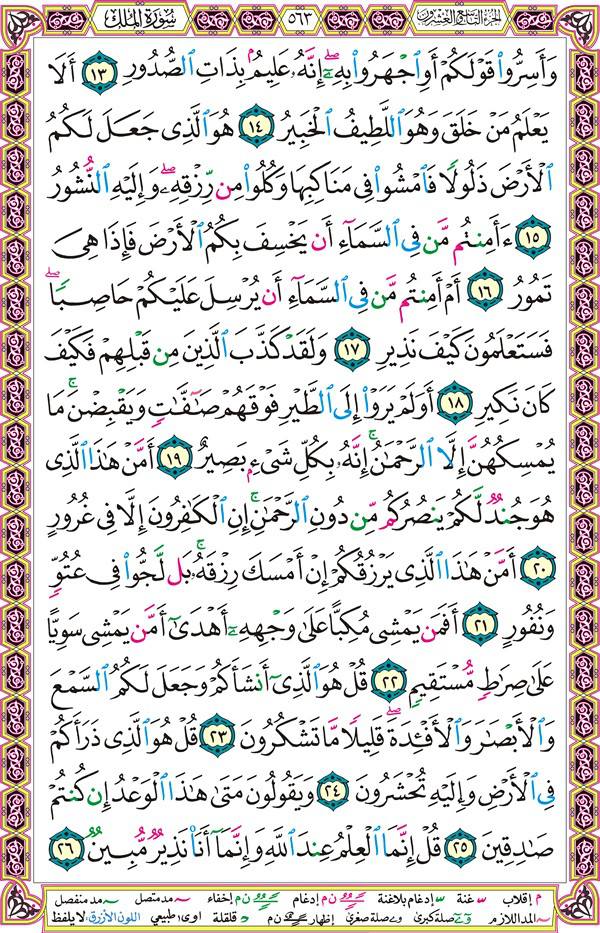 الجزء التاسع والعشرون ٥٦٣ سورة الملك
وَأَسِرُّوا۟ قَوْلَكُمْ أَوِ ٱجْهَرُوا۟ بِهِۦٓ ۖ إِنَّهُۥ عَلِيمٌۢ بِذَاتِ ٱلصُّدُورِ ١٣ أَلَا
يَعْلَمُ مَنْ خَلَقَ وَهُوَ ٱللَّطِيفُ ٱلْخَبِيرُ ١٤ هُوَ ٱلَّذِى جَعَلَ لَكُمُ
ٱلْأَرْضَ ذَلُولًا فَٱمْشُوا۟ فِى مَنَاكِبِهَا وَكُلُوا۟ مِن رِّزْقِهِۦ ۖ وَإِلَيْهِ ٱلنُّشُورُ
١٥ ءَأَمِنتُم مَّن فِى ٱلسَّمَآءِ أَن يَخْسِفَ بِكُمُ ٱلْأَرْضَ فَإِذَا هِىَ
تَمُورُ ١٦ أَمْ أَمِنتُم مَّن فِى ٱلسَّمَآءِ أَن يُرْسِلَ عَلَيْكُمْ حَاصِبًا ۖ
فَسَتَعْلَمُونَ كَيْفَ نَذِيرِ ١٧ وَلَقَدْ كَذَّبَ ٱلَّذِينَ مِن قَبْلِهِمْ فَكَيْفَ
كَانَ نَكِيرِ ١٨ أَوَلَمْ يَرَوْا۟ إِلَى ٱلطَّيْرِ فَوْقَهُمْ صَـٰٓفَّـٰتٍ وَيَقْبِضْنَ ۚ مَا
يُمْسِكُهُنَّ إِلَّا ٱلرَّحْمَـٰنُ ۚ إِنَّهُۥ بِكُلِّ شَىْءٍۭ بَصِيرٌ ١٩ أَمَّنْ هَـٰذَا ٱلَّذِى
هُوَ جُندٌ لَّكُمْ يَنصُرُكُم مِّن دُونِ ٱلرَّحْمَـٰنِ ۚ إِنِ ٱلْكَـٰفِرُونَ إِلَّا فِى غُرُورٍ
٢٠ أَمَّنْ هَـٰذَا ٱلَّذِى يَرْزُقُكُمْ إِنْ أَمْسَكَ رِزْقَهُۥ ۚ بَل لَّجُّوا۟ فِى عُتُوٍّ
وَنُفُورٍ ٢١ أَفَمَن يَمْشِى مُكِبًّا عَلَىٰ وَجْهِهِۦٓ أَهْدَىٰٓ أَمَّن يَمْشِى سَوِيًّا
عَلَىٰ صِرَٰطٍ مُّسْتَقِيمٍ ٢٢ قُلْ هُوَ ٱلَّذِىٓ أَنشَأَكُمْ وَجَعَلَ لَكُمُ ٱلسَّمْعَ
وَٱلْأَبْصَـٰرَ وَٱلْأَفْـِٔدَةَ ۖ قَلِيلًا مَّا تَشْكُرُونَ ٢٣ قُلْ هُوَ ٱلَّذِى ذَرَأَكُمْ
فِى ٱلْأَرْضِ وَإِلَيْهِ تُحْشَرُونَ ٢٤ وَيَقُولُونَ مَتَىٰ هَـٰذَا ٱلْوَعْدُ إِن كُنتُمْ
صَـٰدِقِينَ ٢٥ قُلْ إِنَّمَا ٱلْعِلْمُ عِندَ ٱللَّهِ وَإِنَّمَآ أَنَا۠ نَذِيرٌ مُّبِينٌ ٢٦
م إقلاب غنة إدغام بلاغنة ن م إدغام ن إخفاء مد متصل مد منفصل
المد اللازم صلة كبرى صلة صغرى إظهار ن م قلقلة اوى طبيعي اللون الأزرق: لا يلفظ